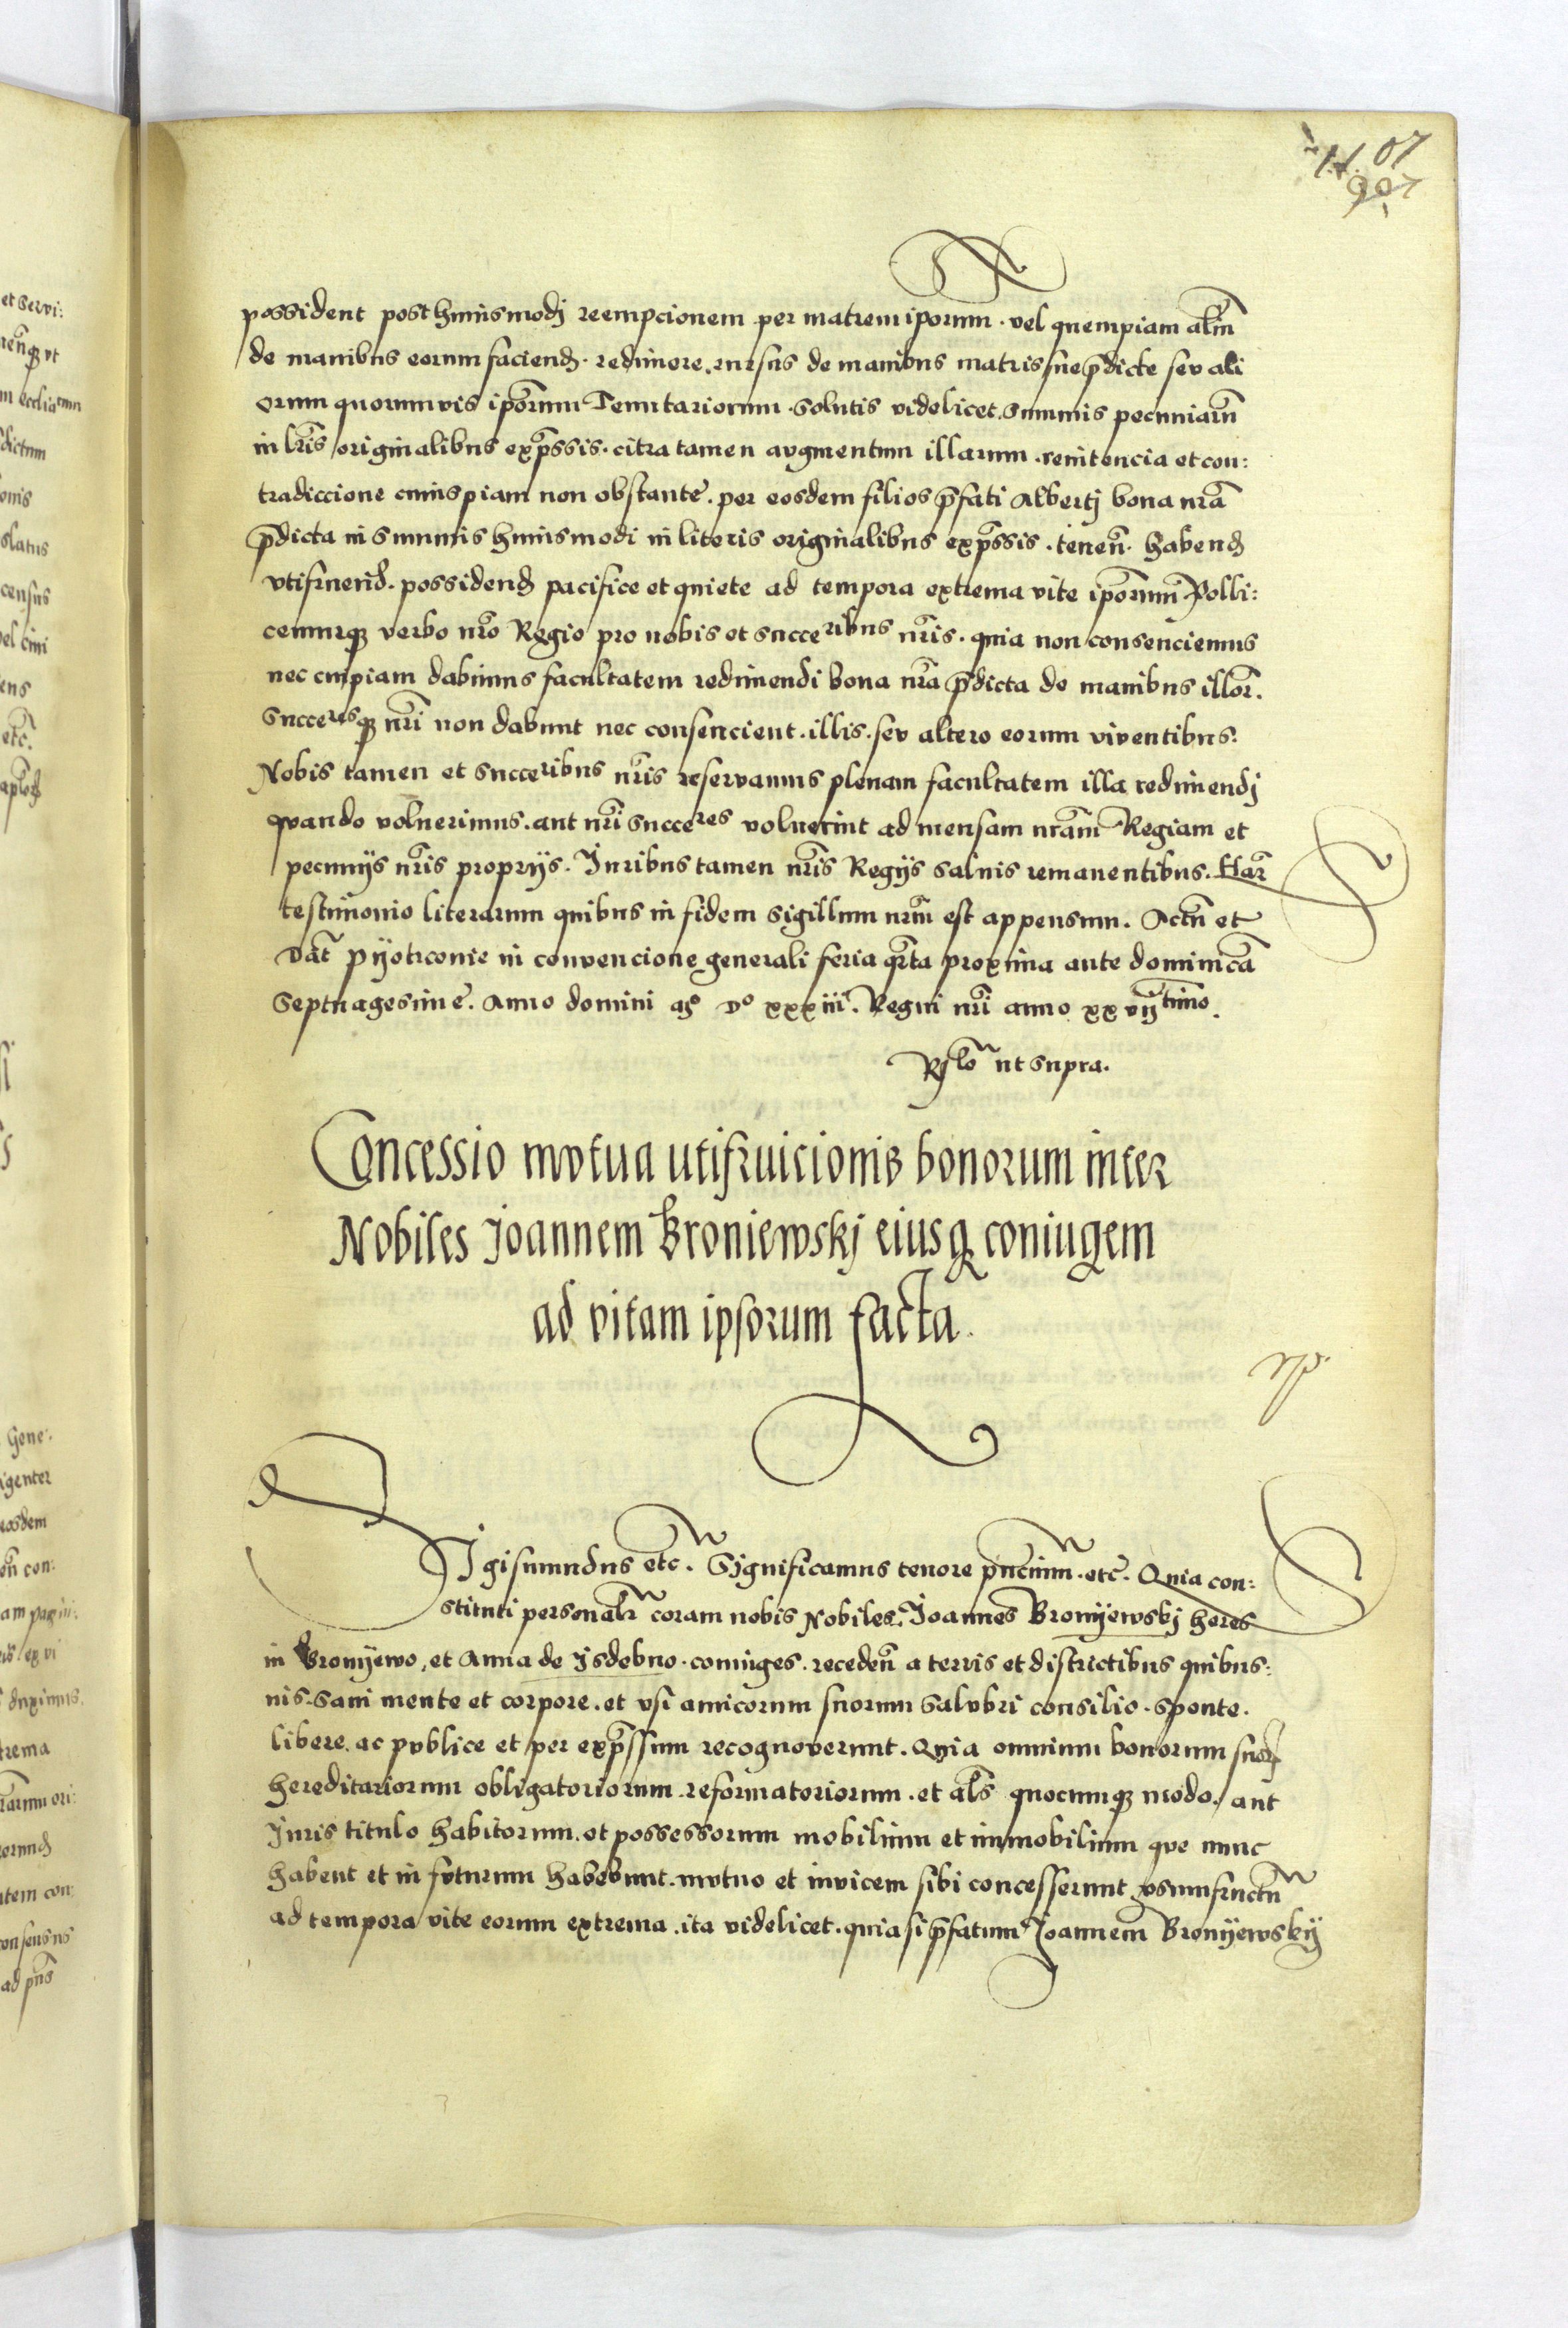 possident post huiusmodj reempcionem per matrem iporum · vel quempiam alm̃
de manibus eorum faciend̄ · redimere. rursus de manibus matris sue p̄dicte seu ali
orum quorumvis ipõrum Tenutariorum · solutis videlicet. summis pecuniarũ
in lr̃is originalibus exp̄ssis · citra tamen augmentum illarum · renitencia et con:
tradiccione cuiuspiam non obstante. per eosdem filios p̄fati Albertj bona nr̃a
p̄dicta in summis huiusmodi in literis originalibus exp̄ssis · tenen̄ · habend̄
vtifruend̄. possidend̄ pacifice et quiete ad tempora extrema vite ipõrum Polli:
cemurq; verbo nr̃o Regio pro nobis et succeribus nr̃is · quia non consenciemus
nec cuipiam dabimus facultatem redimendi bona nr̃a p̄dicta de manibus illor̃.
Succeresq; nr̃i non dabunt nec consencient · illis · seu altero eorum viventibus.
Nobis tamen et succeribus nr̃is reservamus plenam facultatem illa redimendj
quando voluerimus. aut nr̃i succeres voluerint ad mensam nr̃am Regiam et
pecunijs nr̃is proprijs. Iuribus tamen nr̃is Regijs salvis remanentibus. Har̃
testimonio literarum quibus in fidem sigillum nr̃m est appensum. Actũ et
Dat̃ Pyotrconie in convencione generali feria qr̃ta proxima ante dominicã
Septuagesime. Anno domini Mo Do xxxiii. Regni nr̃i anno xxvijtimo.
Rslõ ut supra.
Concessio mvtua utifruicionis bonorum inter
Nobiles Joannem Broniewskj eiusq; coniugem
ad vitam ipsorum facta.
Sigismundus etc̃. Significamus tenore pñcium. etc. Quia con:
stituti personalr̃ coram nobis Nobiles Joannes Bronyewskj heres
in Bronyewo, et Anna de Jsdebno · coniuges · receden̄ a terris et districtibus quibus:
uis. sani mente et corpore. et vsi amicorum suorum salvbri consilio · sponte ·
libere. ac pvblice et per exp̄ssum recognoverunt. Quia omnium bonorum suor̃
hereditariorum obligatoriorum · reformatoriorum · et als̃ quocumq; modo, aut
Juris titulo habitorum. et possessorum mobilium et immobilium que nunc
habent et in fvturum habebunt. mvtuo et invicem sibi concesserunt vsumfructũ
ad tempora vite eorum extrema. ita videlicet. quia si p̄fatum Joannem Bronyewskij